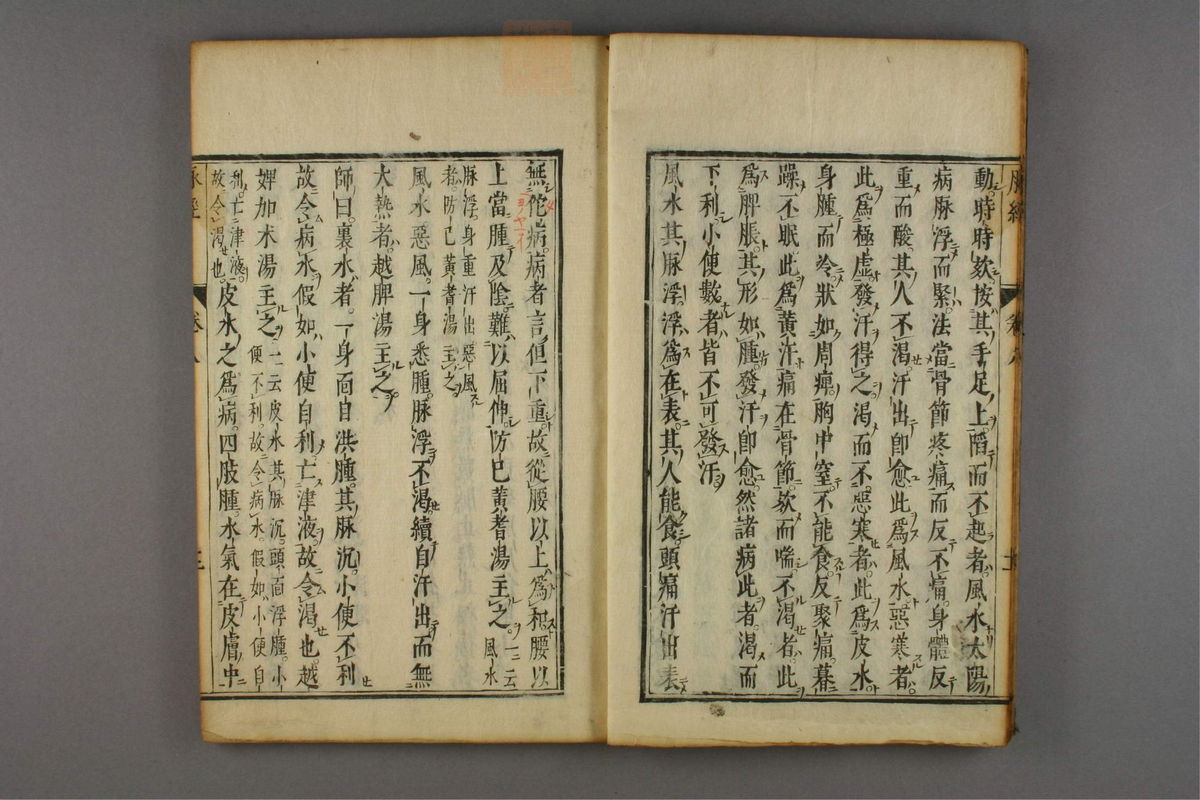 動時時欬按其手足上陷而不起者風水太陽
病脉浮而緊法當骨節疼痛而反不痛身體反
重而酸其人不渴汗出即愈此爲風水惡寒者
此爲極虛發汗得之渴而不惡寒者此爲皮水
身腫而冷狀如周痺胸中窒不能食反聚痛暮
躁不眠此爲黃汗痛在骨節欬而喘不渴者此
爲脾脹其形如腫發汗即愈然諸病此者渴而
下利小便數者皆不可發汗
風水其脉浮浮爲在表其人能食頭痛汗出表
無佗病病者言但下重故從腰以上爲和腰以
上當腫及陰難以屈伸防已黃耆湯主之一云風水
脉浮身重汗出惡風
者防已黃耆湯主之
風水惡風一身悉腫脉浮不渴續自汗出而無
大熱者越脾湯主之
師曰裏水者一身面目洪腫其脉沉小使不利
故令病水假如小使自利亡津液故令渴也越
婢加术湯主之一云皮水其脉沉頭面浮腫小便不利故令病水假如小便自
利亡津液
故令渴也皮水之爲病四肢腫水氣在皮膚中